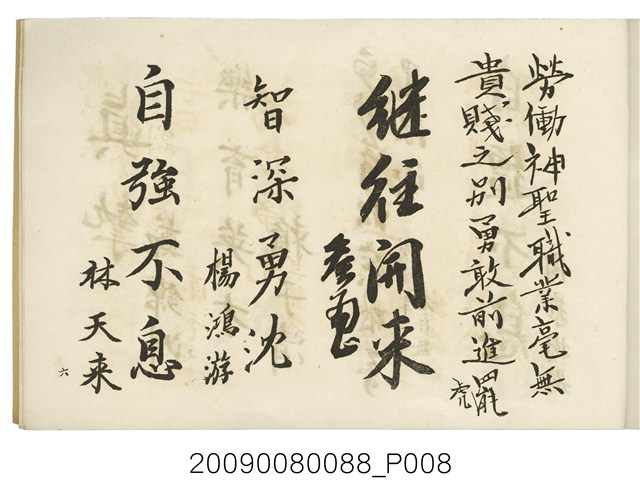 勞働神聖職業毫無
貴賤之別勇敢前進罷
虎
继往開来
智深勇沈
楊鴻游
自強不息
林天来
六
20090080088_P008